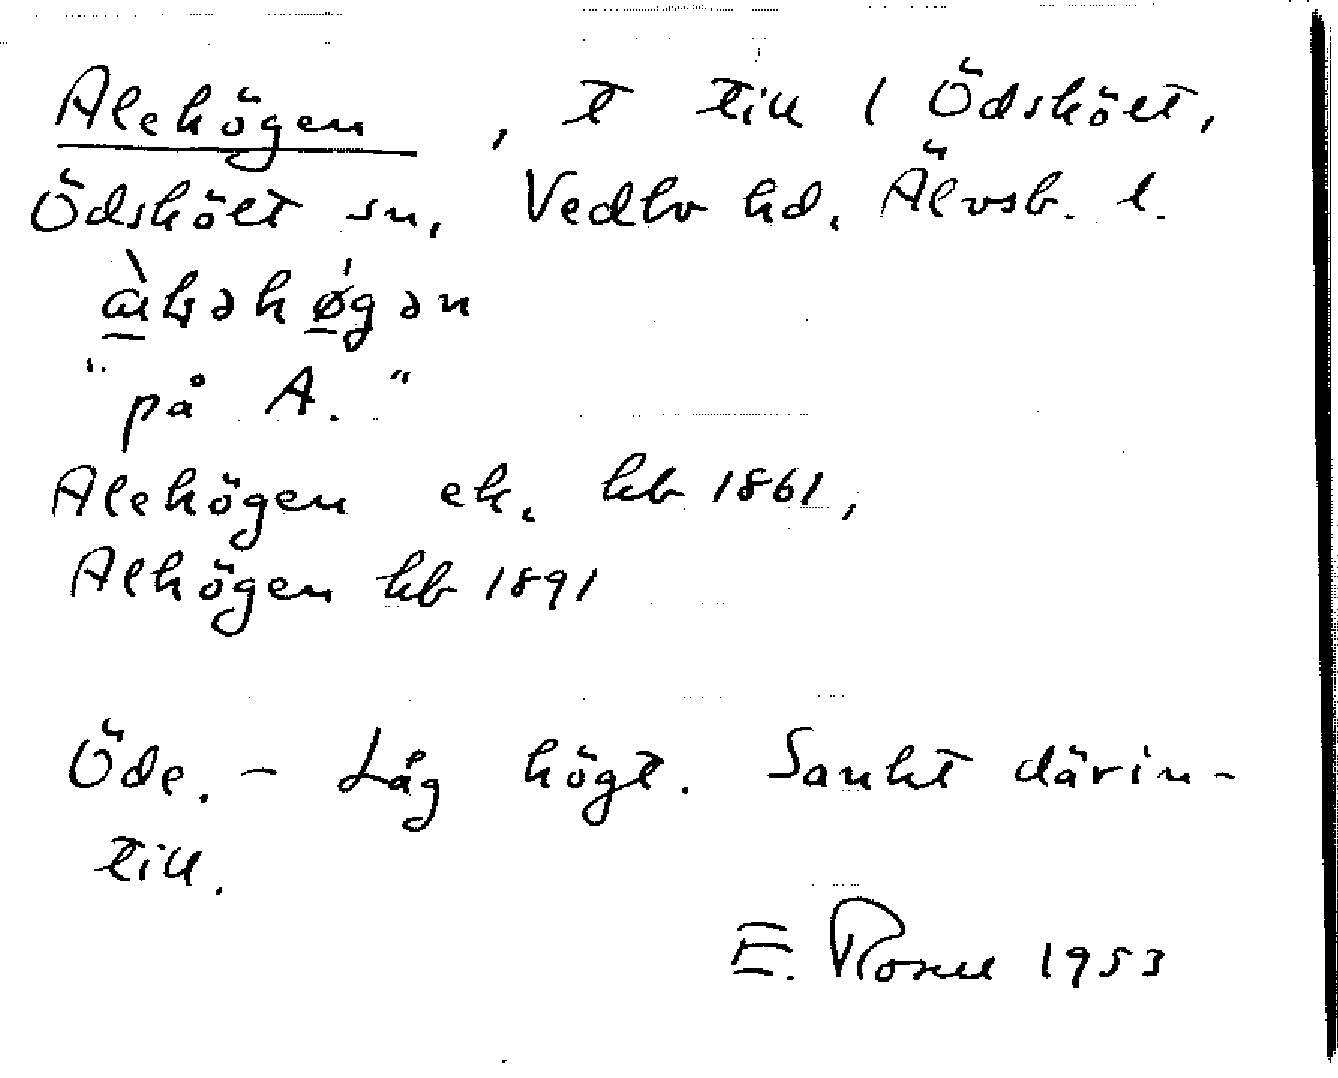 Alehögen, t till 1 Ödskölt,
Ödskölt sn, Vedbo hd. Älvsb. l.
"på A."
Alehögen ek. kb 1861,
Alhögen kb 1891
Öde. - Låg högt. Sankt därin-
till.
E. 1953